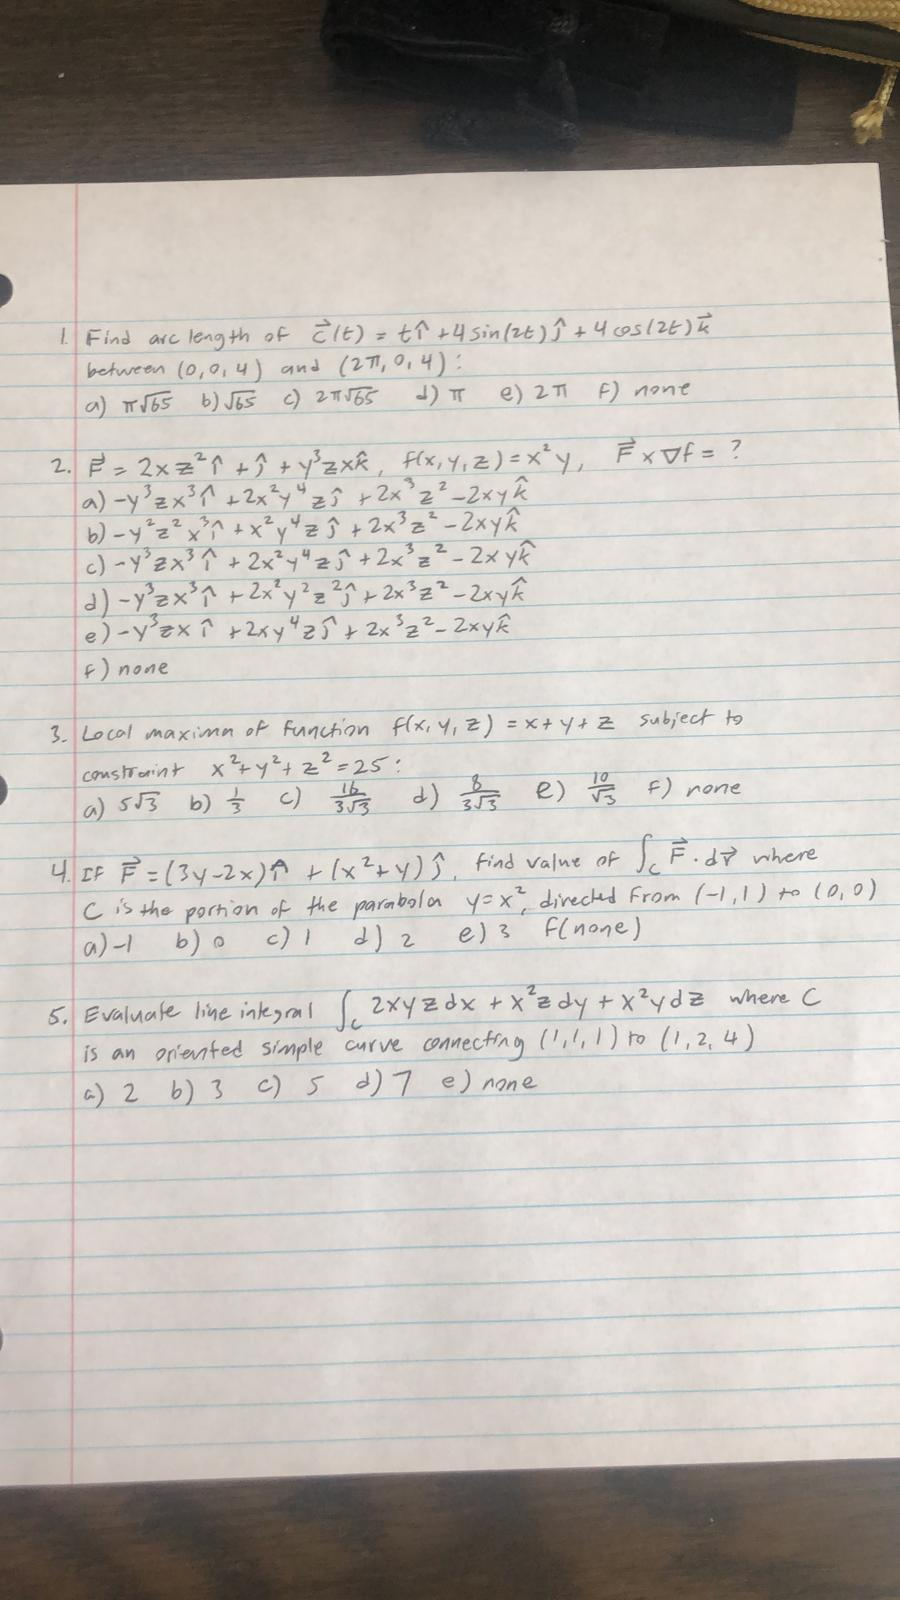 1. Find arc length of c⃗(t) = tî + 4 sin(2t) ĵ + 4 cos(2t) k⃗
between (0,0,4) and (2π, 0, 4):
a) π√65 b) √65 c) 2π√65 d) π e) 2π f) none
2. F⃗ = 2xz²î + ĵ + y³zxk̂, f(x,y,z) = x²y, F⃗ x ∇f = ?
a) -y³zx³î + 2x²y⁴zĵ + 2x³z² - 2xyk̂
b) -y²z²x³î + x²y⁴zĵ + 2x³z² - 2xyk̂
c) -y³zx³î + 2x²y⁴zĵ + 2x³z² - 2xyk̂
d) -y³zx³î + 2x²y²z²ĵ + 2x³z² - 2xyk̂
e) -y³zxî + 2xy⁴zĵ + 2x³z² - 2xyk̂
f) none
3. Local maxima of function f(x,y,z) = x+y+z subject to
constraint x²+y²+z²=25:
a) 5√3 b) 1/3 c) 16/3√3 d) 8/3√3 e) 10/√3 f) none
4. If F⃗ = (3y-2x)î + (x²+y)ĵ, find value of ∫_C F⃗·dr⃗ where
C is the portion of the parabola y=x², directed from (-1,1) to (0,0)
a) -1 b) 0 c) 1 d) 2 e) 3 f(none)
5. Evaluate line integral ∫_C 2xyzdx + x²zdy + x²ydz where C
is an oriented simple curve connecting (1,1,1) to (1,2,4)
a) 2 b) 3 c) 5 d) 7 e) none